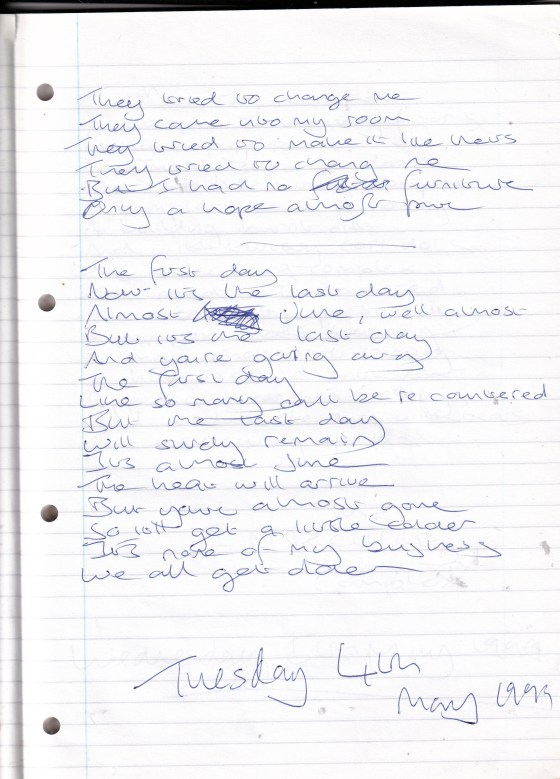 They tried to change me
They came into my room
They tried to make it like theirs
They tried to chang me
But I had no furniture
Only a hope almost
The first day
Now it's the last day
Almost June, well almost
But it's the last day
And you're going away
The first day
Like so many can't be re countered
But the last day
Will surely remain
It's almost June
The heat will arrive
But you're almost gone
So it'll get a little colder
It's none of my business
We all get older
Tuesday 4th
May 1999